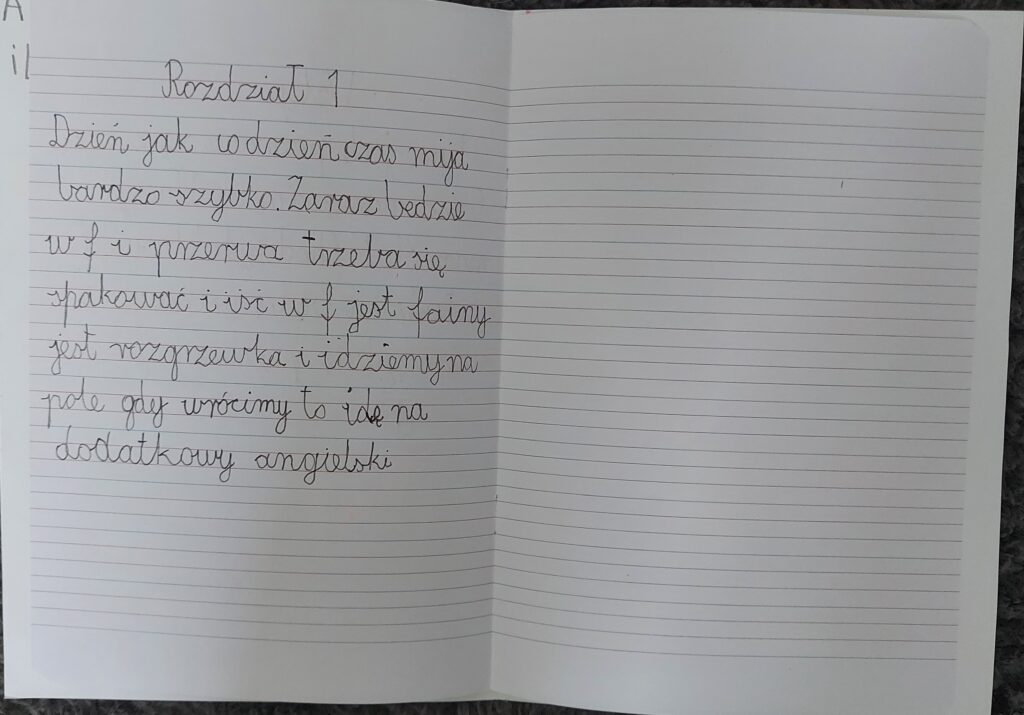 A
il
Rozdział 1
Dzień jak codzień czas mija
bardzo szybko. Zaraz bedzie
w f i przerwa trzeba się
spakować i iść w f jest fainy
jest rozgrzewka i idziemy na
pole gdy wrócimy to idę na
dodatkowy angielski